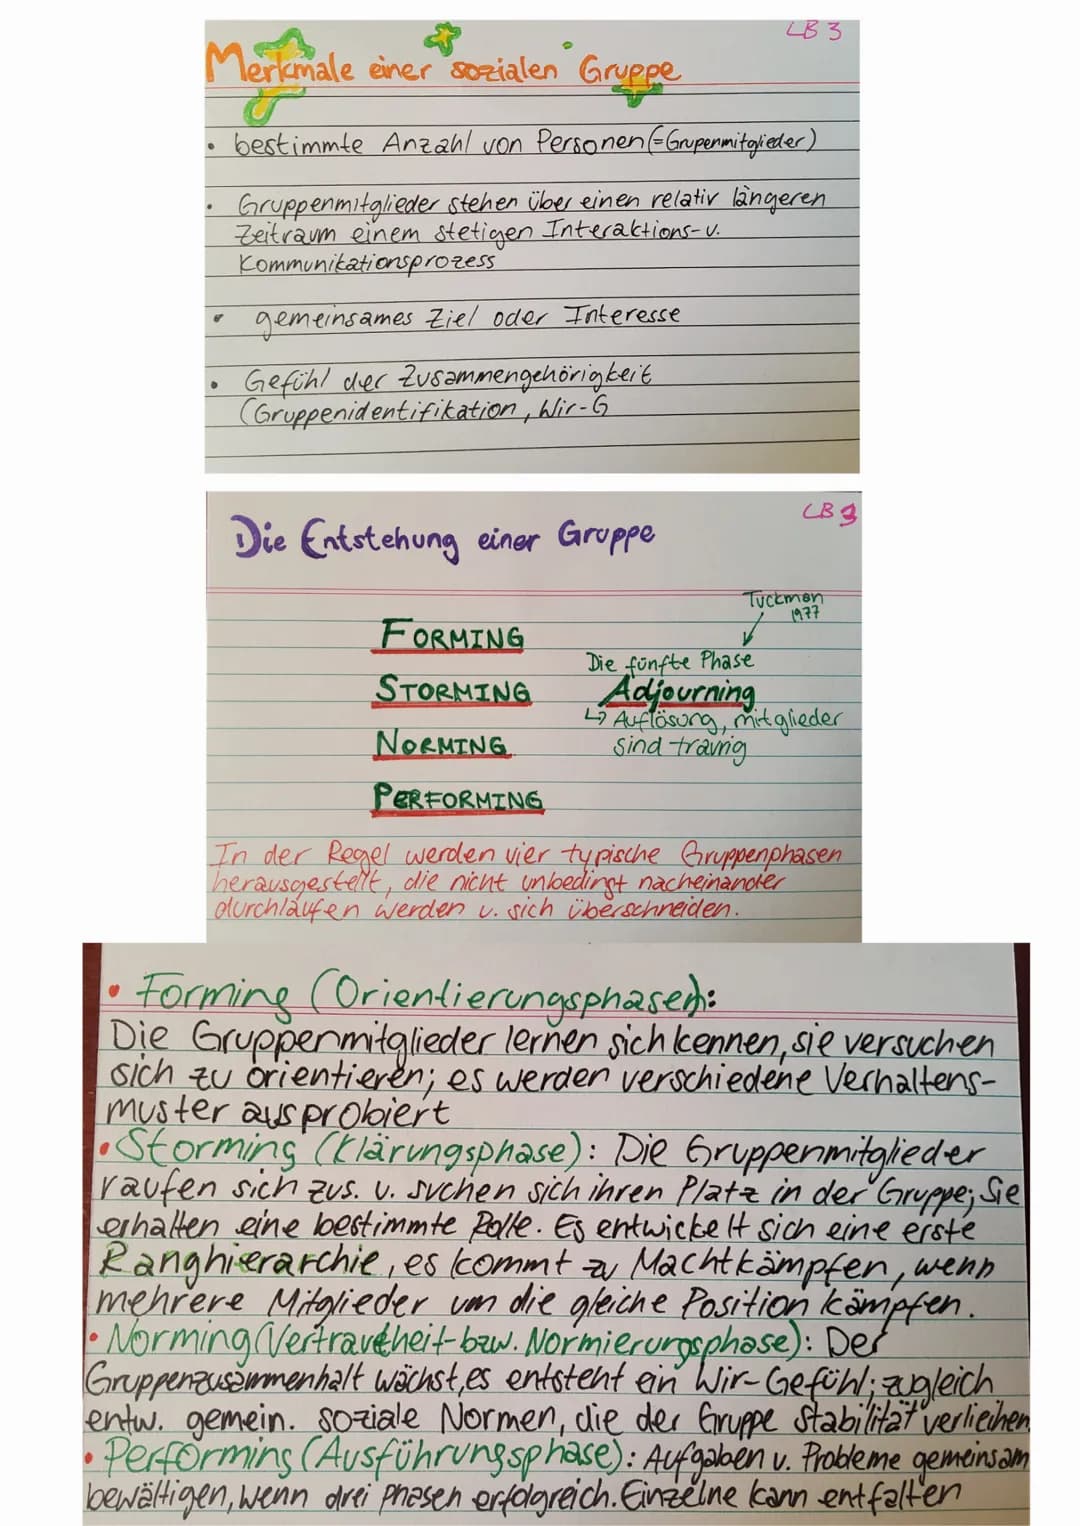 LB 3
Merkmale einer sozialen Gruppe
• bestimmte Anzahl von Personen (=Grupenmitglieder)
• Gruppenmitglieder stehen über einen relativ längeren
Zeitraum einem stetigen Interaktions- u.
Kommunikationsprozess
• gemeinsames Ziel oder Interesse
• Gefühl der Zusammengehörigkeit
(Gruppenidentifikation, Wir-G
LB 3
Die Entstehung einer Gruppe
Tuckman
1977
FORMING
Die fünfte Phase
STORMING
Adjourning
↳ Auflösung, mitglieder
NORMING
sind traurig
PERFORMING
In der Regel werden vier typische Gruppenphasen
herausgestellt, die nicht unbedingt nacheinander
durchlaufen werden u. sich überschneiden.
• Forming (Orientierungsphasen):
Die Gruppenmitglieder lernen sich kennen, sie versuchen
sich zu orientieren; es werden verschiedene Verhaltens-
muster ausprobiert
• Storming (Klärungsphase): Die Gruppenmitglieder
raufen sich zus. u. suchen sich ihren Platz in der Gruppe; Sie
erhalten eine bestimmte Rolle. Es entwickelt sich eine erste
Ranghierarchie, es kommt zu Machtkämpfen, wenn
mehrere Mitglieder um die gleiche Position kämpfen.
• Norming (Vertrautheit- bzw. Normierungsphase): Der
Gruppenzusammenhalt wächst, es entsteht ein Wir-Gefühl; zugleich
entw. gemein. soziale Normen, die der Gruppe Stabilität verlieihen
• Performing (Ausführungsphase): Aufgaben u. Probleme gemeinsam
bewältigen, wenn drei phasen erfolgreich. Einzelne kann entfalten